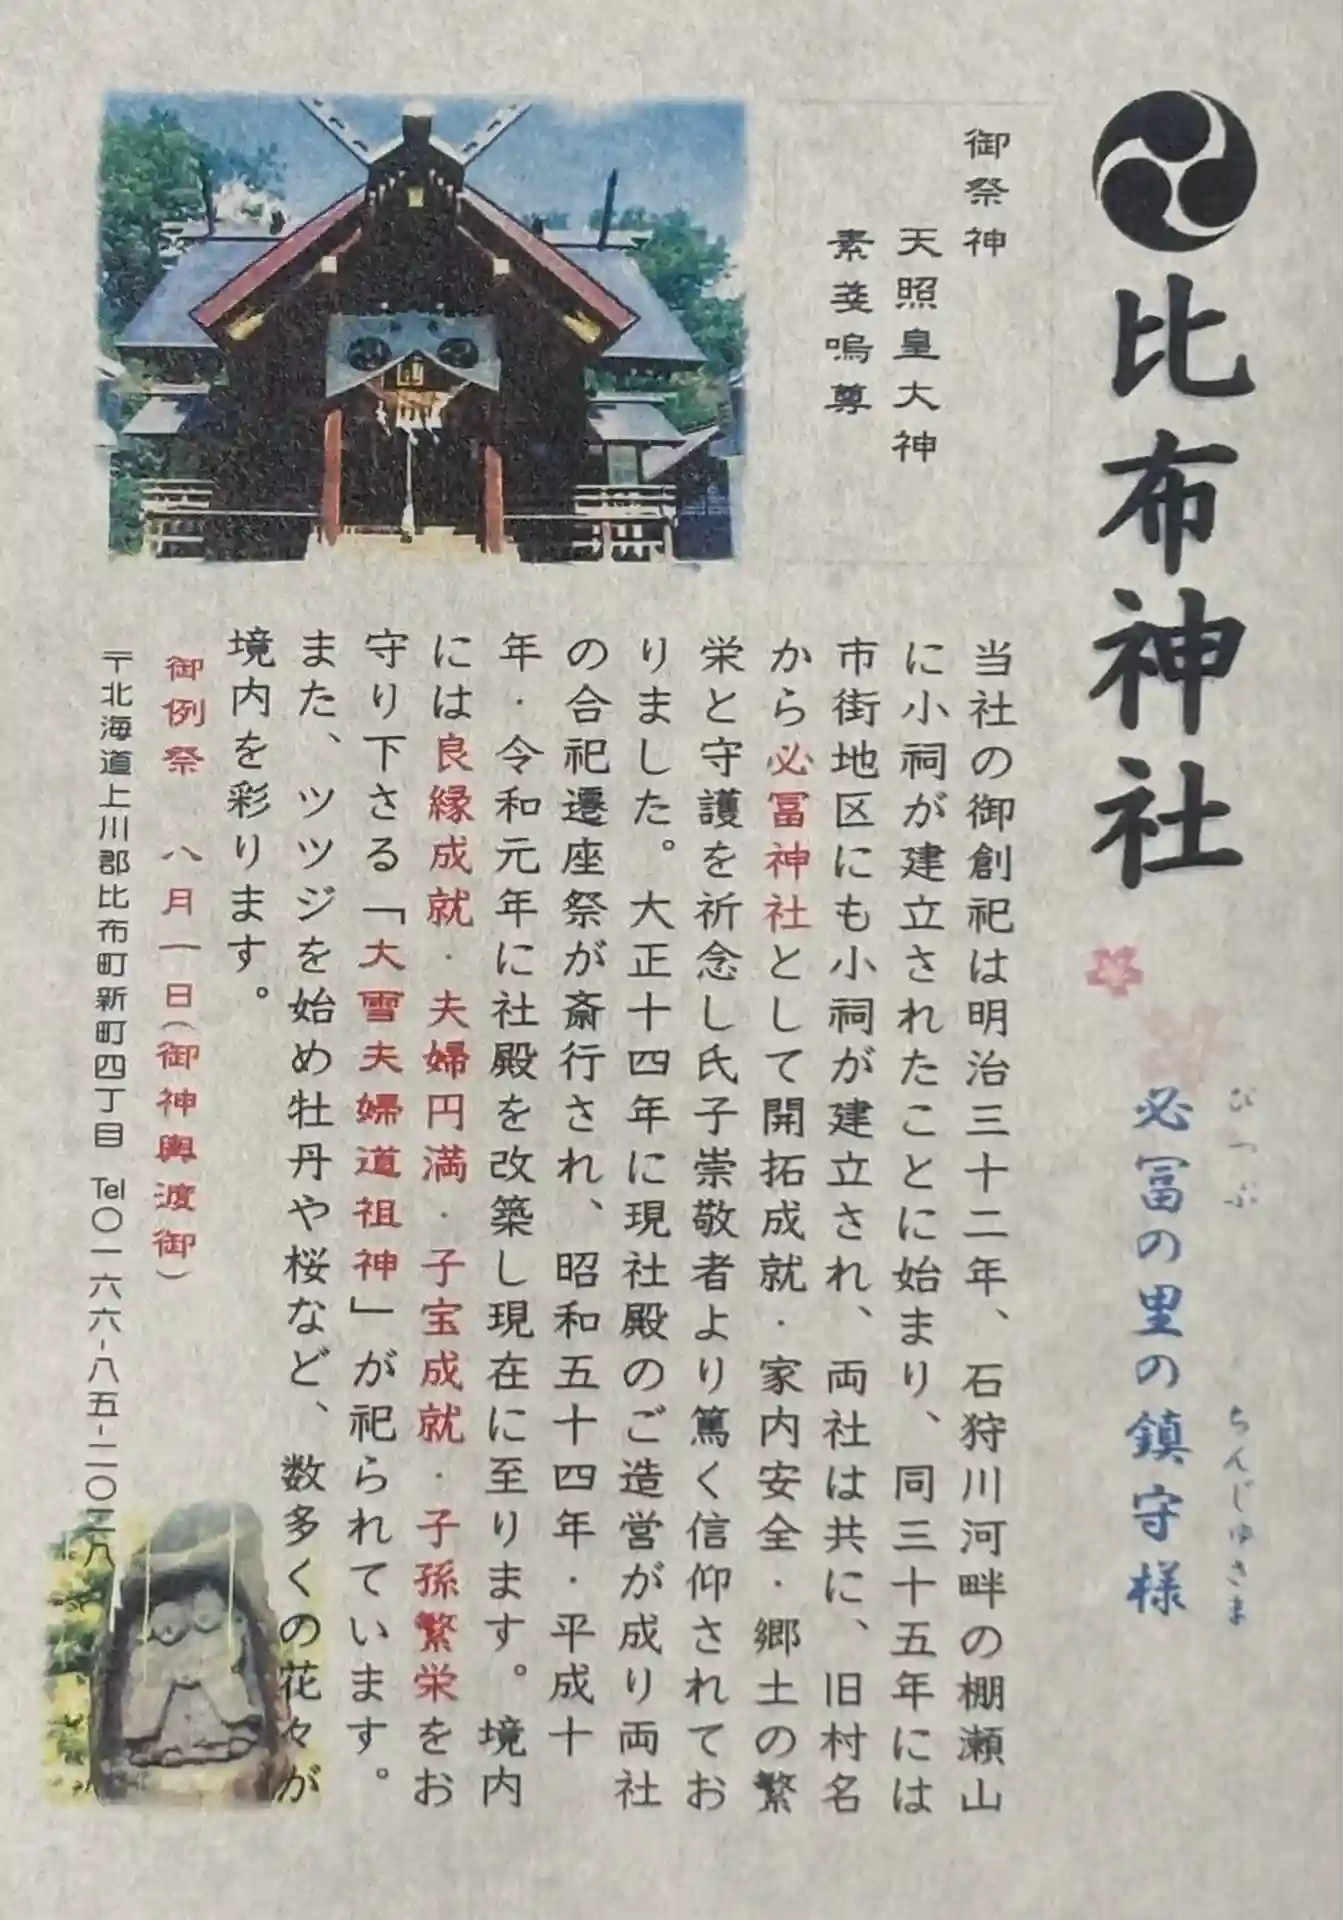 比布神社
必冨の里の鎮守様
びっぷ
ちんじゅさま
御祭神
天照皇大神
素戔嗚尊
当社の御創祀は明治三十二年、石狩川河畔の棚瀬山
に小祠が建立されたことに始まり、同三十五年には
市街地区にも小祠が建立され、両社は共に、旧村名
から必冨神社として開拓成就・家内安全・郷土の繁
栄と守護を祈念し氏子崇敬者より篤く信仰されてお
りました。大正十四年に現社殿のご造営が成り両社
の合祀遷座祭が斎行され、昭和五十四年・平成十
年・令和元年に社殿を改築し現在に至ります。境内
には良縁成就・夫婦円満・子宝成就・子孫繁栄をお
守り下さる「大雪夫婦道祖神」が祀られています。
また、ツツジを始め牡丹や桜など、数多くの花々が
境内を彩ります。
御例祭 八月一日(御神輿渡御)
〒北海道上川郡比布町新町四丁目 Tel〇一六六-八五-二〇二八